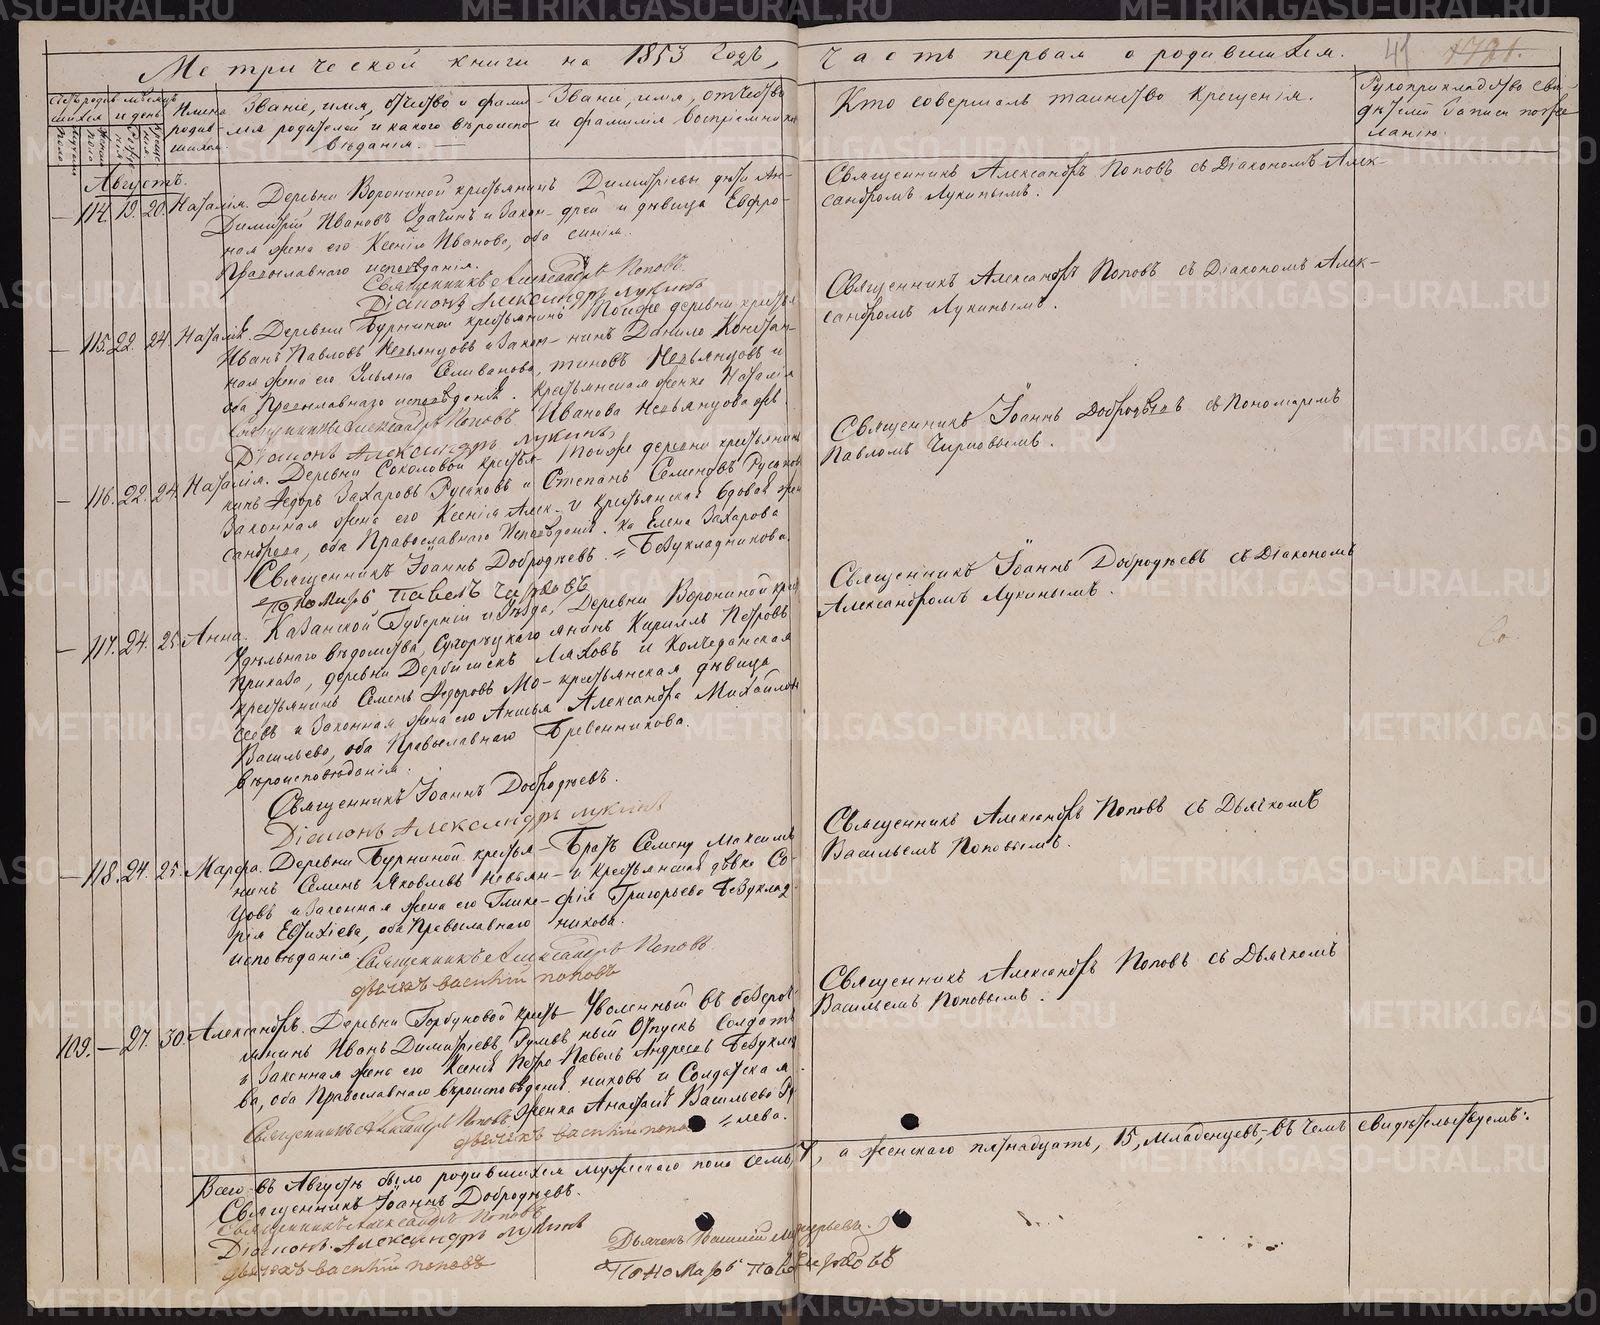 Метрической книги на 1853 годъ,
Часть первая о родившихся.
41
1721.
Счетъ родившихся
Мѣсяцъ и день
Имена родившихся.
Званіе, имя, отчество и фамилія родителей и какого вѣроисповѣданія.
Званіе, имя, отчество и фамилія воспріемниковъ
Кто совершалъ таинство крещенія.
Рукоприкладство свидѣтелей записи по желанію.
Августъ.
— 114. 19. 20. Наталія.
Деревни Ворониной крестьянинъ
Димитрій Ивановъ и закон-
ная жена его Ксенія Иванова, оба
Православнаго исповѣданія.
Димитріевы дѣти Ан-
дрей и дѣвица Евфро-
синія.
Священникъ Александръ Поповъ съ Діакономъ Алек-
сандромъ Лукинымъ.
Священникъ Александръ Поповъ
Діаконъ Александръ Лукинъ
— 115. 22. 24. Наталія.
Деревни Бурниной крестьянинъ
Иванъ Павловъ Невьянцовъ и закон-
ная жена его Ульяна Селиванова,
оба Православнаго исповѣданія.
Тойже деревни крестья-
нинъ Данило Констан-
тиновъ Невьянцовъ и
крестьянская женка Наталія
Иванова Невьянцова
Священникъ Александръ Поповъ съ Діакономъ Алек-
сандромъ Лукинымъ.
Священникъ Александръ Поповъ
Діаконъ Александръ Лукинъ
— 116. 22. 24. Наталія.
Деревни Соколовой крестья-
нинъ Ѳедоръ Захаровъ Русаковъ и
законная жена его Ксенія Алек-
сандрова, оба Православнаго исповѣданія.
Тойже деревни крестьянинъ
Степанъ Семеновъ Русаковъ
и крестьянская вдовая жен-
ка Елена Захарова
Безукладникова.
Священникъ Іоаннъ Добродѣевъ съ Пономаремъ
Павломъ Чирковымъ.
Священникъ Іоаннъ Добродѣевъ.
Пономарь Павелъ Чирковъ
— 117. 24. 25. Анна.
Казанской Губерніи и Уѣзда,
Удѣльнаго вѣдомства,
Приказа, деревни Дербишекъ
крестьянинъ Семенъ Ѳедоровъ Мо-
сеевъ и законная жена его Анисья
Васильева, оба Православнаго
вѣроисповѣданія.
Деревни Ворониной крес-
янинъ Кириллъ Петровъ
Ляховъ и Колчеданская
крестьянская дѣвица
Александра Михайлова
Бревенникова.
Священникъ Іоаннъ Добродѣевъ съ Діакономъ
Александромъ Лукинымъ.
Священникъ Іоаннъ Добродѣевъ.
Діаконъ Александръ Лукинъ
— 118. 24. 25. Марѳа.
Деревни Бурниной крестья-
нинъ Семенъ Яковлевъ Невьян-
цовъ и законная жена его Глике-
рія Евтихіева, оба Православнаго
исповѣданія
Братъ Семену Максимъ
и крестьянская дѣвка Со-
фія Григорьева Безуклад-
никова.
Священникъ Александръ Поповъ съ Дьячкомъ
Васильемъ Поповымъ.
Священникъ Александръ Поповъ.
Дьячекъ Василій Поповъ
109. — 27. 30. Александръ.
Деревни Горбуновой кресть-
янинъ Иванъ Димитріевъ
и законная жена его Ксенія Петро-
ва, оба Православнаго вѣроисповѣданія.
Уволенный въ безсроч-
ный отпускъ Солдатъ
Павелъ Андреевъ Безуклад-
никовъ и Солдатская
женка Анастасія Васильева
лева.
Священникъ Александръ Поповъ съ Дьячкомъ
Васильемъ Поповымъ.
Священникъ Александръ Поповъ.
Дьячекъ Василій Попо
Всего въ Августѣ было родившихся мужескаго пола семь, 7, а женскаго пятнадцать, 15, младенцевъ,—въ чемъ свидѣтельствуемъ:.
Священникъ Іоаннъ Добродѣевъ.
Священникъ Александръ Поповъ
Діаконъ Александръ Лукинъ
Дьячекъ Василій Поповъ
Дьячекъ
Пономарь Павелъ Чирковъ
METRIKI.GASO-URAL.RU